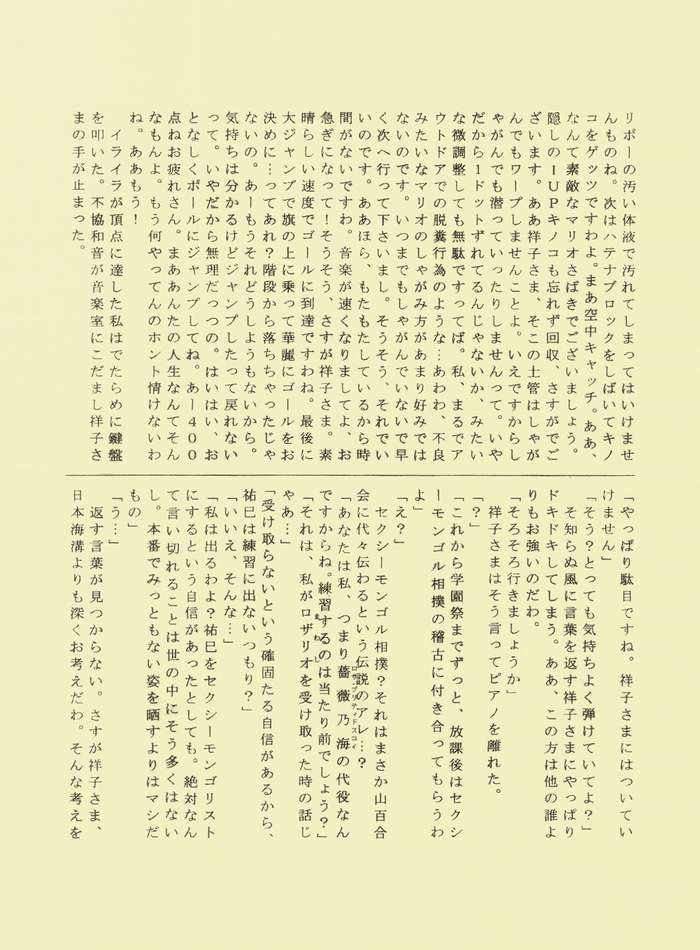 リボーの汚い体液で汚れてしまってはいけませ
んものね。次はハテナブロックをしばいてキノ
コをゲッツですわよ。まあ空中キャッチ。ああ、
なんて素敵なマリオさばきでございましょう。
隠しの1UPキノコも忘れず回収、さすがでご
ざいます。ああ祥子さま、そこの土管はしゃが
んでもワープしませんことよ。いえですからし
ゃがんでも潜っていったりしませんって。いや
だから1ドットずれてるんじゃないか、みたい
な微調整しても無駄ですってば。私、まるでア
ウトドアでの脱糞行為のような…あわわ、不良
みたいなマリオのしゃがみ方があまり好みでは
ないのです。いつまでもしゃがんでいないで早
く次へ行って下さいまし。そうそう、それでい
いのです。ああほら、もたもたしているから時
間がないですわ。音楽が速くなりましてよ、お
急ぎになって！そうそう、さすが祥子さま。素
晴らしい速度でゴールに到達ですわね。最後に
大ジャンプで旗の上に乗って華麗にゴールをお
決めに…ってあれ？階段から落ちちゃったじゃ
ないの。あーもうそれどうしようもないから。
気持ちは分かるけどジャンプしたって戻れない
って。いやだから無理だっつの。はいはい、お
となしくポールにジャンプしてね。あー400
点ねお疲れさん。まああんたの人生なんてそん
なもんよ。もう何やってんのホント情けないわ
ね。ああもう！
イライラが頂点に達した私はでたらめに鍵盤
を叩いた。不協和音が音楽室にこだまし祥子さ
まの手が止まった。
「やっぱり駄目ですね。祥子さまにはついてい
けません」
「そう？とっても気持ちよく弾けていてよ？」
そ知らぬ風に言葉を返す祥子さまにやっぱり
ドキドキしてしまう。ああ、この方は他の誰よ
りもお強いのだわ。
「そろそろ行きましょうか」
祥子さまはそう言ってピアノを離れた。
「？」
「これから学園祭までずっと、放課後はセクシ
ーモンゴル相撲の稽古に付き合ってもらうわ
よ」
「え？」
セクシーモンゴル相撲？それはまさか山百合
会に代々伝わるという伝説のアレ…？
「あなたは私、つまり薔薇乃海の代役なん
ですからね。練習するのは当たり前でしょう？」
「それは、私がロザリオを受け取った時の話じ
ゃあ…」
「受け取らないという確固たる自信があるから、
祐巳は練習に出ないつもり？」
「いいえ、そんな…」
「私は出るわよ？祐巳をセクシーモンゴリスト
にするという自信があったとしても。絶対なん
て言い切れることは世の中にそう多くはない
し。本番でみっともない姿を晒すよりはマシだ
もの」
「う…」
返す言葉が見つからない。さすが祥子さま、
日本海溝よりも深くお考えだわ。そんな考えを